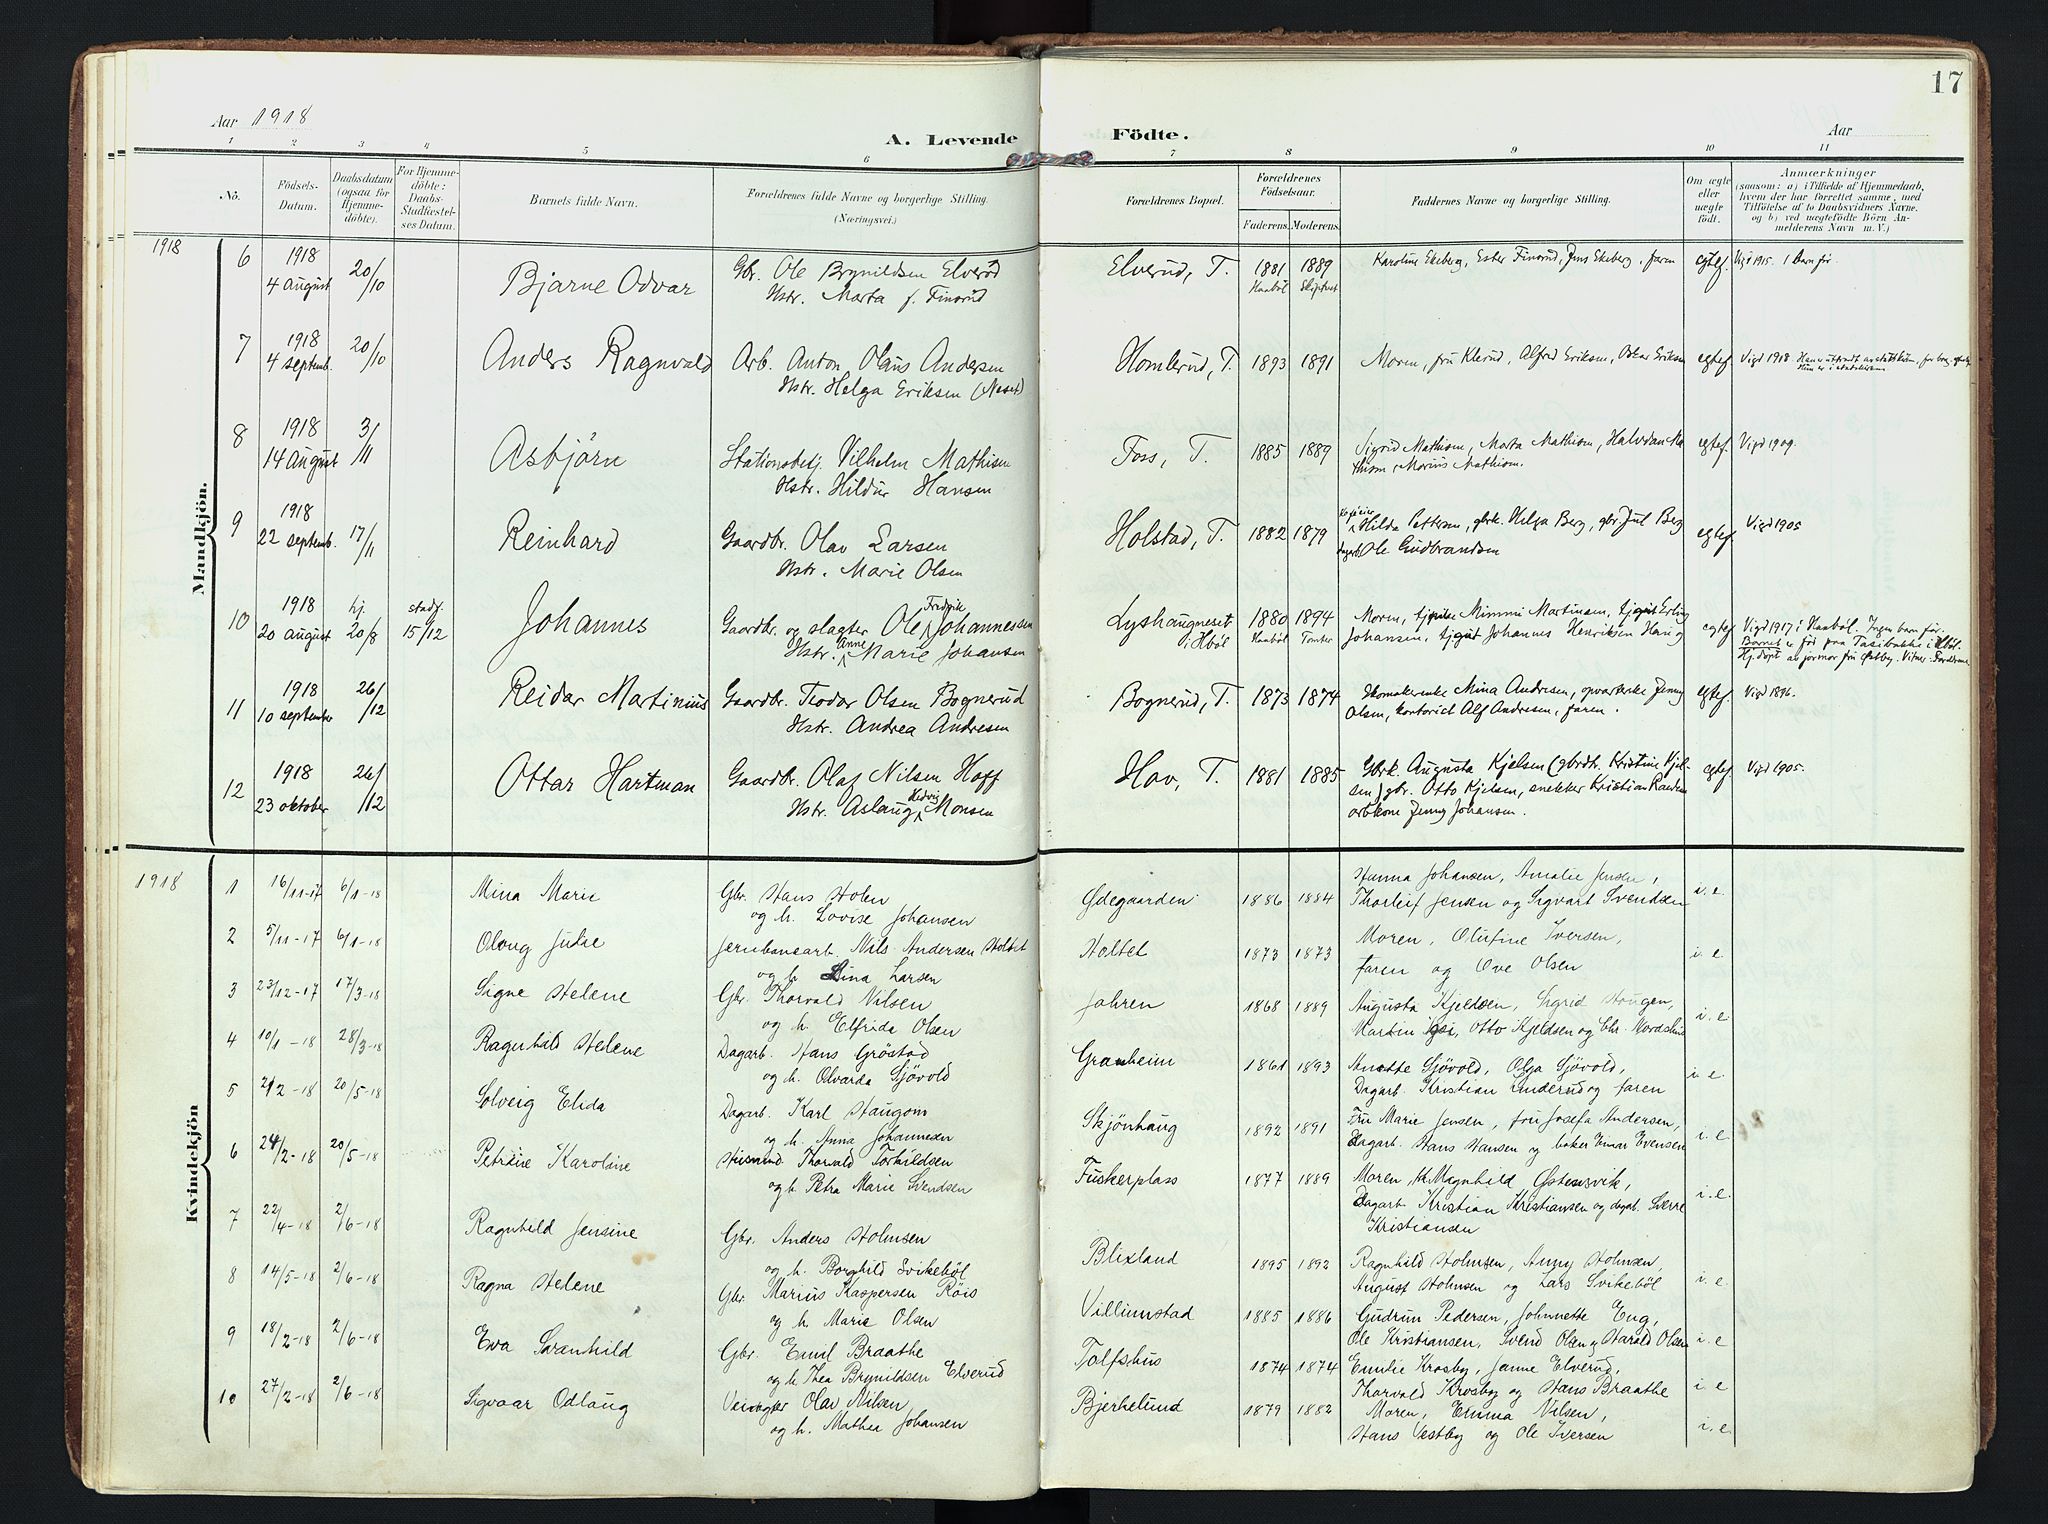 17
Aar 1918
A. Levende Födte.
Aar
1 2 3 4 5 6 7 8 9 10 11
No.
Födsels-Datum.
Daabsdatum (ogsaa for Hjemmedöbte).
For Hjemmedöbte: Daabs-Stadfæstelses Datum.
Barnets fulde Navn.
Forældrenes fulde Navne og borgerlige Stilling. (Næringsvei.)
Forældrenes Bopæl.
Forældrenes Födselsaar.
Faderens. Moderens.
Faddernes Navne og borgerlige Stilling.
Om ægte eller uægte født.
Anmærkninger
(saasom: a) i Tilfælde af Hjemmedaab, hvem der har forrettet samme, med Tilföielse af to Daabsvidners Navne. og b) ved uægtefödte Börn Anmelderens Navn m. V.)
Mandkjön.
1918
6 1918 4 August 20/10 Bjarne Odvar Gbr. Ole Brynildsen Elverød Elverud, T. 1881 1889 Karoline Ekeberg, Ester Finsrud, Jens Ekeberg, faren egtef. Vigd 1915. 1 Barn før.
Hstr. Marta f. Finsrud
7 1918 4 septemb. 20/10 Anders Ragnvald Arb. Anton Olaus Andersen Homlerud, T. 1893 1891 Moren, fru Klerud, Alfred Eriksen, Oskar Eriksen egtef. Vigd 1918.
Hstr. Helga Eriksen (Neset)
8 1918 14 August 3/11 Asbjörn Stationsbetj. Vilhelm Mathisen Foss, T. 1885 1889 Sigrid Mathisen, Marta Mathisen, Halvdan Mathisen, Marius Mathisen. egtef. Vigd 1909.
Hstr. Hildur Hansen
9 1918 22 septemb. 17/11 Reinhard Gaardbr. Olav Larsen Holstad, T. 1882 1879 Hilda Pettersen, gbrk. Helga Berg, gbr. Jul Berg egtef. Vigd 1905
Hstr. Marie Olsen Ole Gudbrandsen
10 1918 20 august hj. 20/8 stadf. 15/12 Johannes Gaardbr. og slagter Ole Fredrik Johannessen Lyshaugneset i Hböl 1880 1894 Moren, Mimmi Martinsen, Erling Johansen, Johannes Henriksen Haug egtef Vigd 1917 i Haaböl. Ingen barn før.
Hstr. Anne Marie Johansen
11 1918 10 september 26/12 Reidar Martinius Gaardbr. Teodor Olsen Bognerud Bognerud, T. 1873 1874 Skomakerenke Mina Andresen, Jenny Olsen, kontorist Alf Andresen, faren. egtef. Vigd 1896.
Hstr. Andrea Andresen
12 1918 23 oktober 26/12 Ottar Hartman Gaardbr. Olaf Nilsen Hoff Hov, T. 1881 1885 Gbrk. Augusta Kjelsen (gbrdtr. Kristine Kjelsen) gbr. Otto Kjelsen, snekker Kristian arbkone Jenny Johansen. egtef. Vigd 1905.
Hstr. Aslaug Hedvig Monsen
Kvindekjön
1918
1 16/11-17 6/1-18 Mina Marie Gbr. Hans Holen Ødegaarden 1886 1884 Hanna Johansen, Amalie Jensen, i. e.
og h. Lovise Johansen Thorleif Jensen og Sigvart Svendsen
2 5/11-17 6/1-18 Olaug Julie Jernbanearb. Nils Andersen Holtet Holtet 1873 1873 Moren, Olufine Iversen, i. e
og h. Lina Larsen faren og Ove Olsen
3 23/12-17 17/3-18 Signe Helene Gbr. Thorvald Nilsen Jahren 1868 1889 Augusta Kjeldsen, Sigrid Haugen, i. e
og h. Elfrida Olsen Martin Otto Kjeldsen og Chr.
4 10/1-18 28/3-18 Ragnhild Helene Dagarb. Hans Gröstad Granheim 1861 1893 Anette Sjövold, Olga Sjövold, i. e
og h. Olvarda Sjövold Dagarb. Kristian Linderud og faren
5 2/2-18 20/5-18 Solveig Elida Dagarb. Karl Haugom Skjönhaug 1892 1891 Fru Marie Jensen, fru Josefa Andersen, i. e
og h. Anna Johannesen Dagarb. Hans Hansen og baker Einar Evensen
6 24/2-18 20/5-18 Petrine Karoline Husmand Thorvald Torkildsen Fuskerplass 1877 1889 Moren, Magnhild Østensvik, i. e
og h. Petra Marie Svendsen Dagarb Kristian Kristiansen og dagarb. Sverre Kristiansen
7 22/4-18 2/6-18 Ragnhild Jensine Gbr. Anders Holmsen Blixland 1895 1892 Ragnhild Holmsen, Anny Holmsen, i. e
og h. Borghild Svikeböl August Holmsen og Lars Svikeböl
8 14/5-18 2/6-18 Ragna Helene Gbr. Marius Kaspersen Röis Villumstad 1885 1886 Gudrun Pedersen, Johnnette Eng, i. e
og h. Marie Olsen Ole Kristiansen, Svend Olsen og Harald Olsen
9 18/2-18 2/6-18 Eva Svanhild Gbr. Emil Braathe Tolfshus 1874 1874 Emilie Krosby, Janne Elverud, i. e
og h. Thea Brynildsen Elverud Thorvald Krosby og Hans Braathe
10 27/2-18 2/6-18 Sigvaar Odlaug Veivogter Olav Nilsen Bjerkelund 1879 1882 Moren, Emma Nilsen, i. e
og h. Mathea Johansen Hans Vestby og Ole Iversen